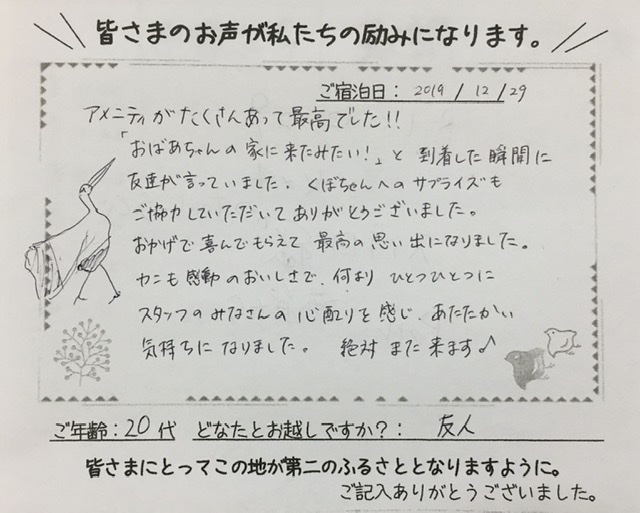 皆さまのお声が私たちの励みになります。
ご宿泊日：2019 / 12 / 29
アメニティがたくさんあって最高でした!!
「おばあちゃんの家に来たみたい！」と到着した瞬間に
友達が言っていました。くぼちゃんへのサプライズも
ご協力していただいてありがとうございました。
おかげで喜んでもらえて最高の思い出になりました。
カニも感動のおいしさで、何よりひとつひとつに
スタッフのみなさんの心配りを感じ、あたたかい
気持ちになりました。絶対また来ます♪
ご年齢：20代 どなたとお越しですか？： 友人
皆さまにとってこの地が第二のふるさととなりますように。
ご記入ありがとうございました。